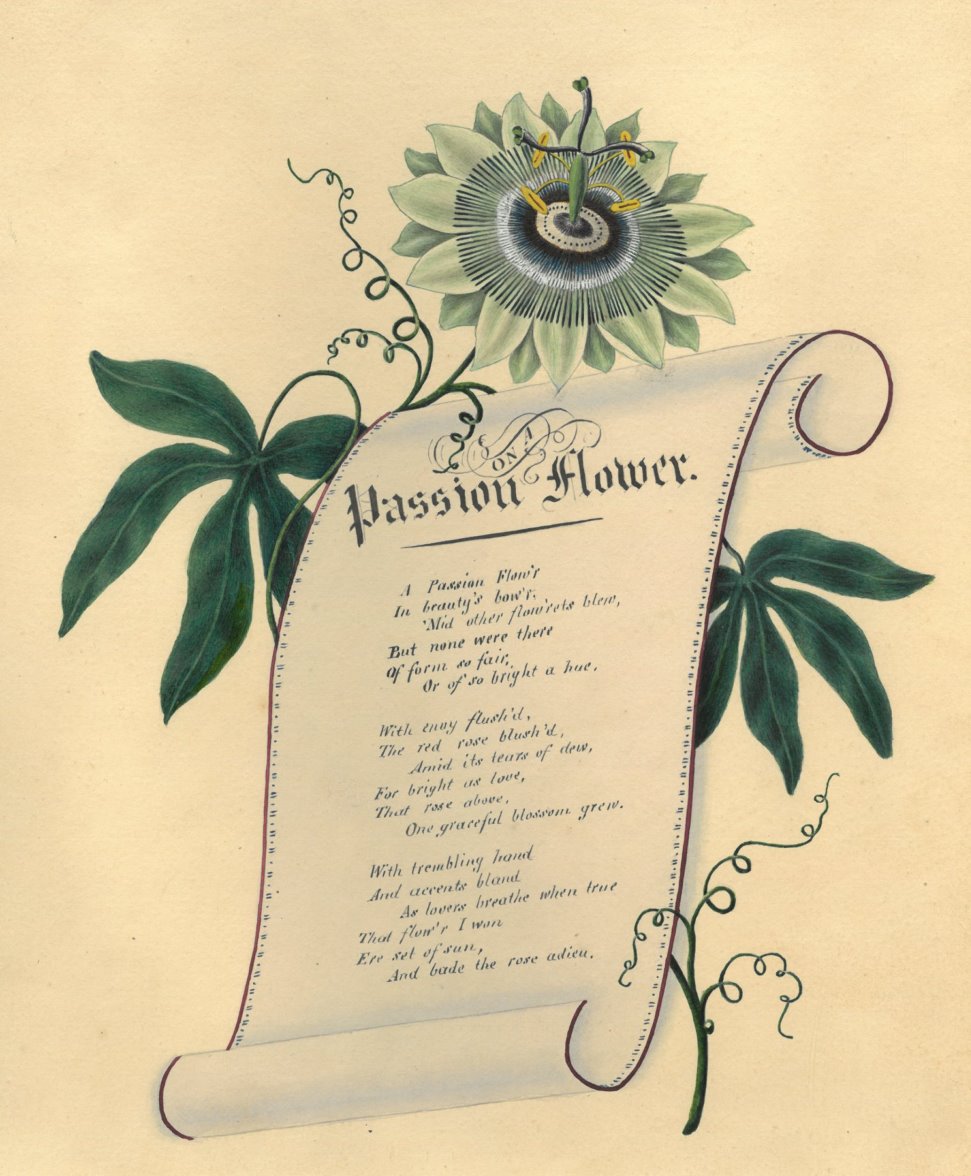 ON A
Passion Flower.
A Passion Flow'r
In beauty's bow'r,
'Mid other flow'rets blew,
But none were there
Of form so fair,
Or of so bright a hue.
With envy flush'd,
The red rose blush'd,
Amid its tears of dew,
For bright as love,
That rose above,
One graceful blossom grew.
With trembling hand
And accents bland
As lovers breathe when true
That flow'r I won
Ere set of sun,
And bade the rose adieu.